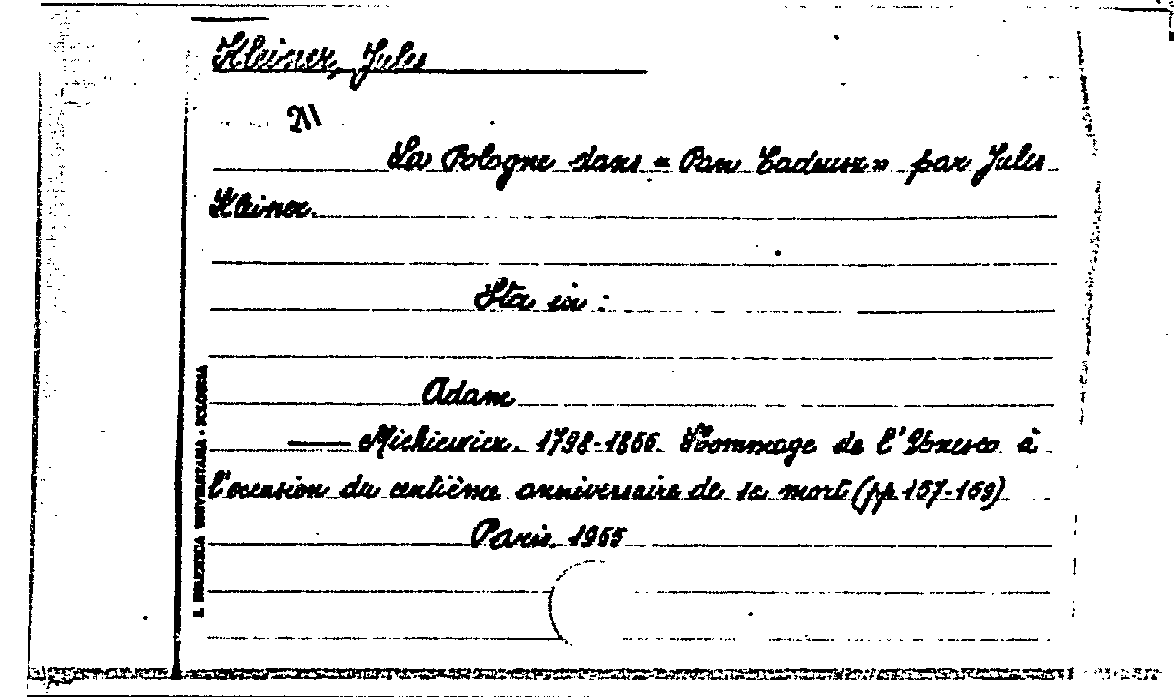 Kleiner, Jules
211
La Pologne dans « Pan Tadeusz » par Jules
Kleiner.
Sta in :
Adam
Mickiewicz. 1798-1855. Hommage de l'Unesco à
l'occasion du centième anniversaire de sa mort (pp 157-169)
Paris. 1955
R. BIBLIOTECA UNIVERSITARIA - BOLOGNA